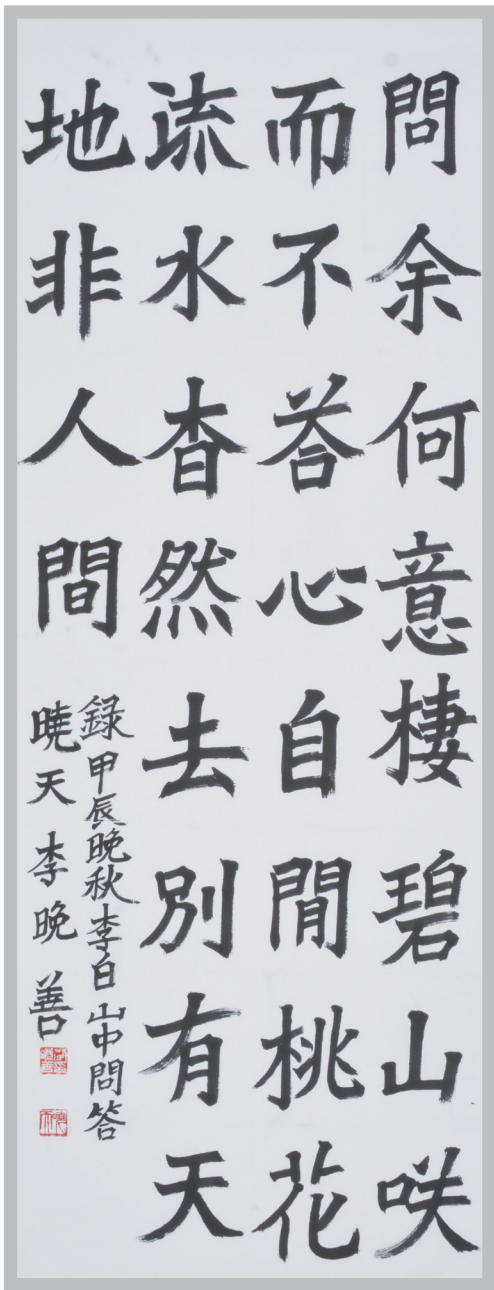 問余何意棲碧山咲
而不荅心自閒桃花
流水杳然去別有天
地非人間
録甲辰晚秋李白山中問答
曉天李晚善